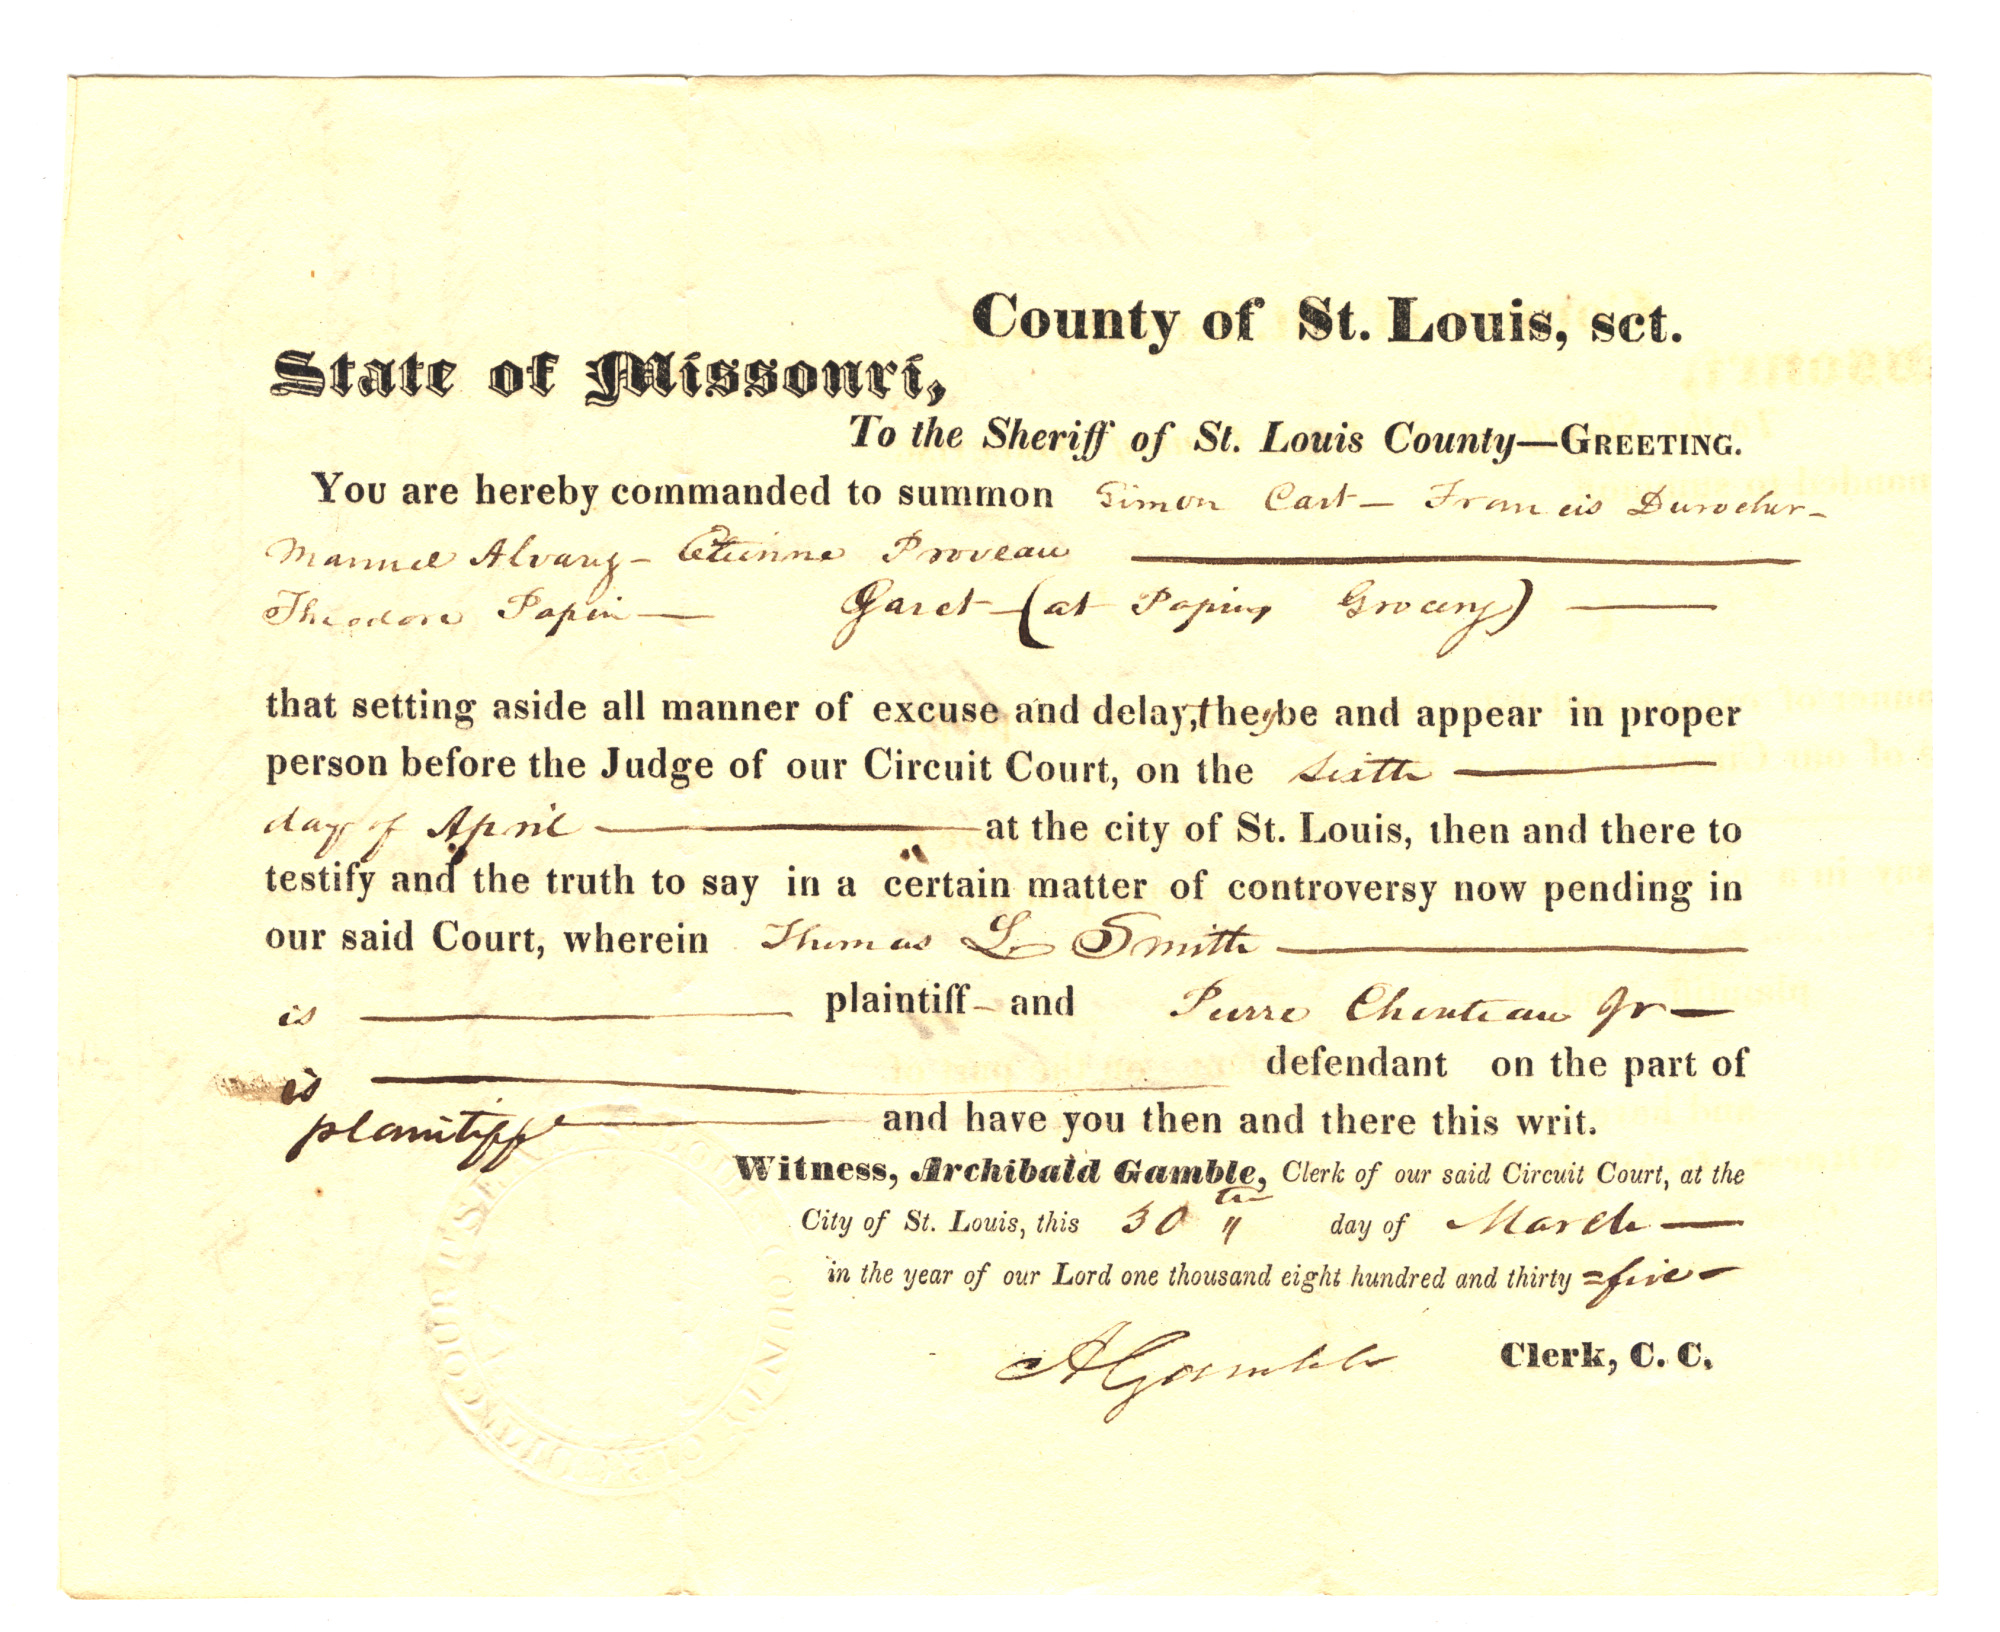 County of St. Louis, sct.
State of Missouri,
To the Sheriff of St. Louis County—GREETING.
You are hereby commanded to summon Simon Cart — Francis Durocher —
Manuel Alvarez — Etienne Proveau
Theodore Papin — Garet — (at Papins Grocery) —
that setting aside all manner of excuse and delay, they be and appear in proper
person before the Judge of our Circuit Court, on the sixth
day of April at the city of St. Louis, then and there to
testify and the truth to say in a certain matter of controversy now pending in
our said Court, wherein Thomas L Smith
is plaintiff — and Pierre Chouteau Jr —
is defendant on the part of
plaintiff and have you then and there this writ.
Witness, Archibald Gamble, Clerk of our said Circuit Court, at the
City of St. Louis, this 30th day of March —
in the year of our Lord one thousand eight hundred and thirty =five —
A Gamble Clerk, C. C.